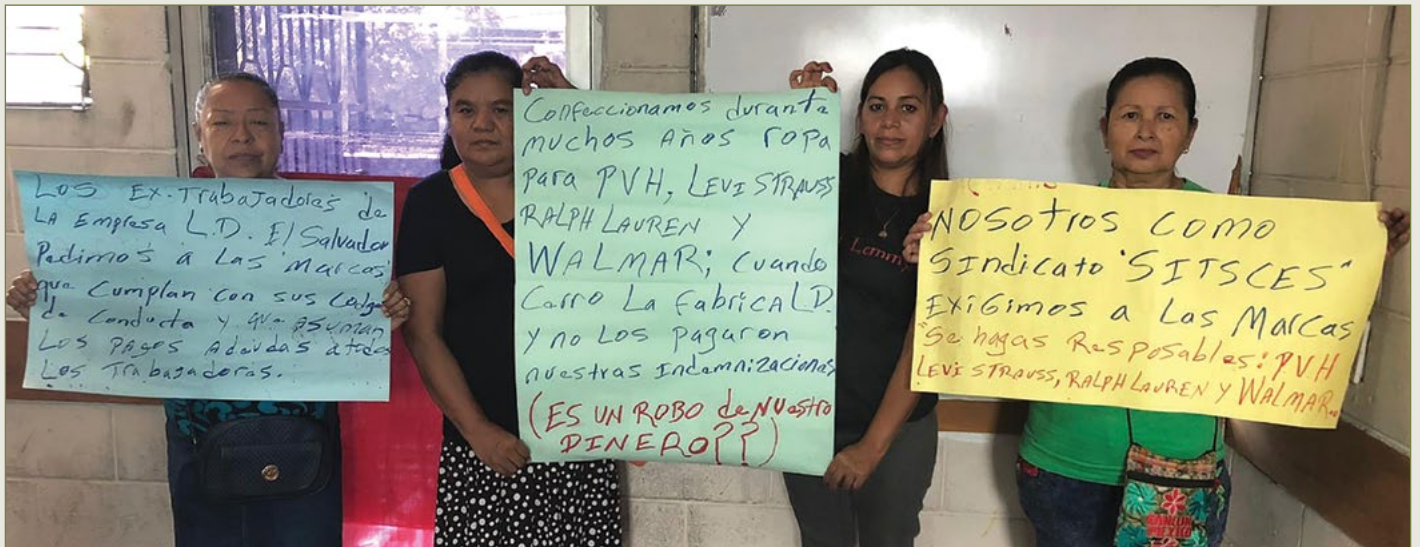 Los Ex-Trabajadores de
La Empresa L.D. El Salvador
Pedimos a Las Marcas
que Cumplan con sus
de Conducta y que asuman
Los Pagos Adeudas a todas
Los Trabajadoras.
Confeccionamos durante
muchos Años ropa
Para PVH, LEVI STRAUSS
RALPH LAUREN Y
WALMAR; Cuando
Carro La fabrica L.D.
y no Los pagaron
nuestras Indemnizaciones
(ES UN ROBO de Nuestro
DINERO??)
NOSOTROS COMO
SINdicato "SITSCES"
EXIGIMOS a Las Marcas
"Se hagas Resposables: PVH
LEVI STRAUSS, RALPH LAUREN Y WALMAR..
CANCUN
MEXICO